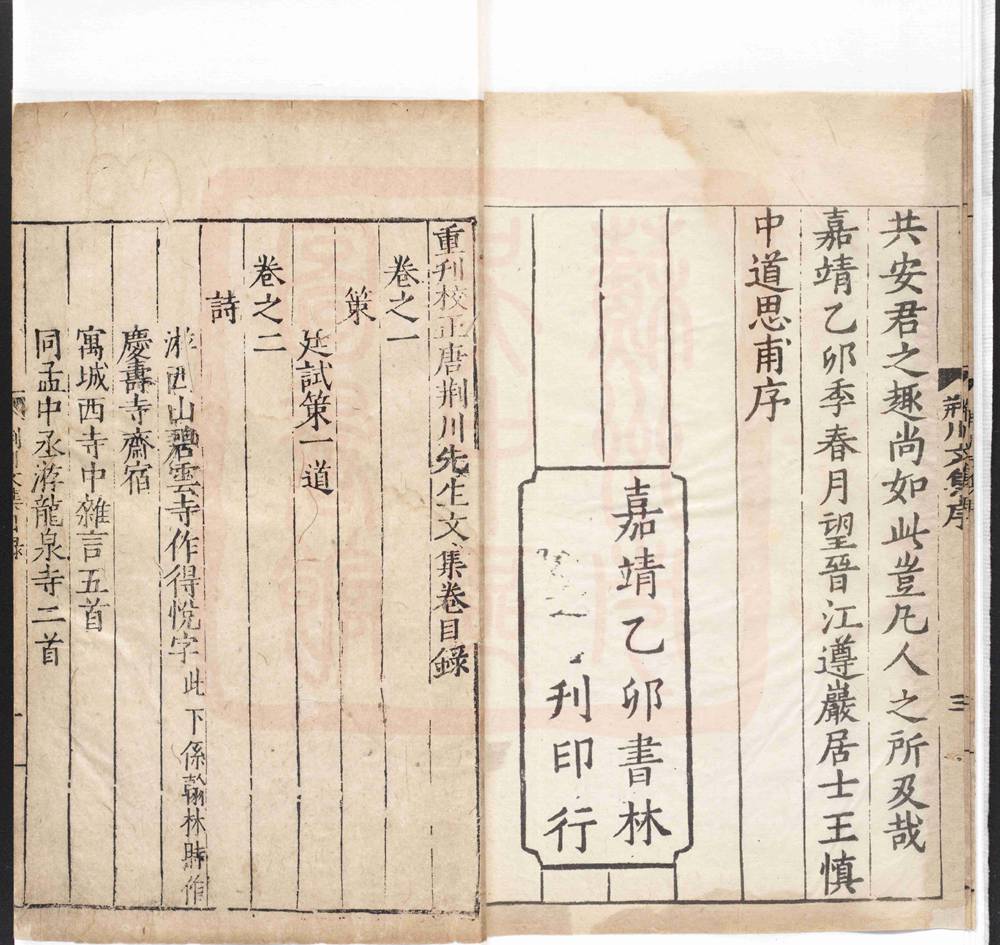 共安君之趣尚如此豈凡人之所及哉
嘉靖乙卯季春月望晉江遵巖居士王慎
中道思甫序
嘉靖乙卯書林
刋印行
荆川文集序
三
重刋校正唐荆川先生文集卷目録
卷之一
策
廷試策一道
卷之二
詩
游西山碧雲寺作得悅字 此下係翰林時作
慶壽寺齋宿
寓城西寺中雜言五首
同孟中丞游龍泉寺二首